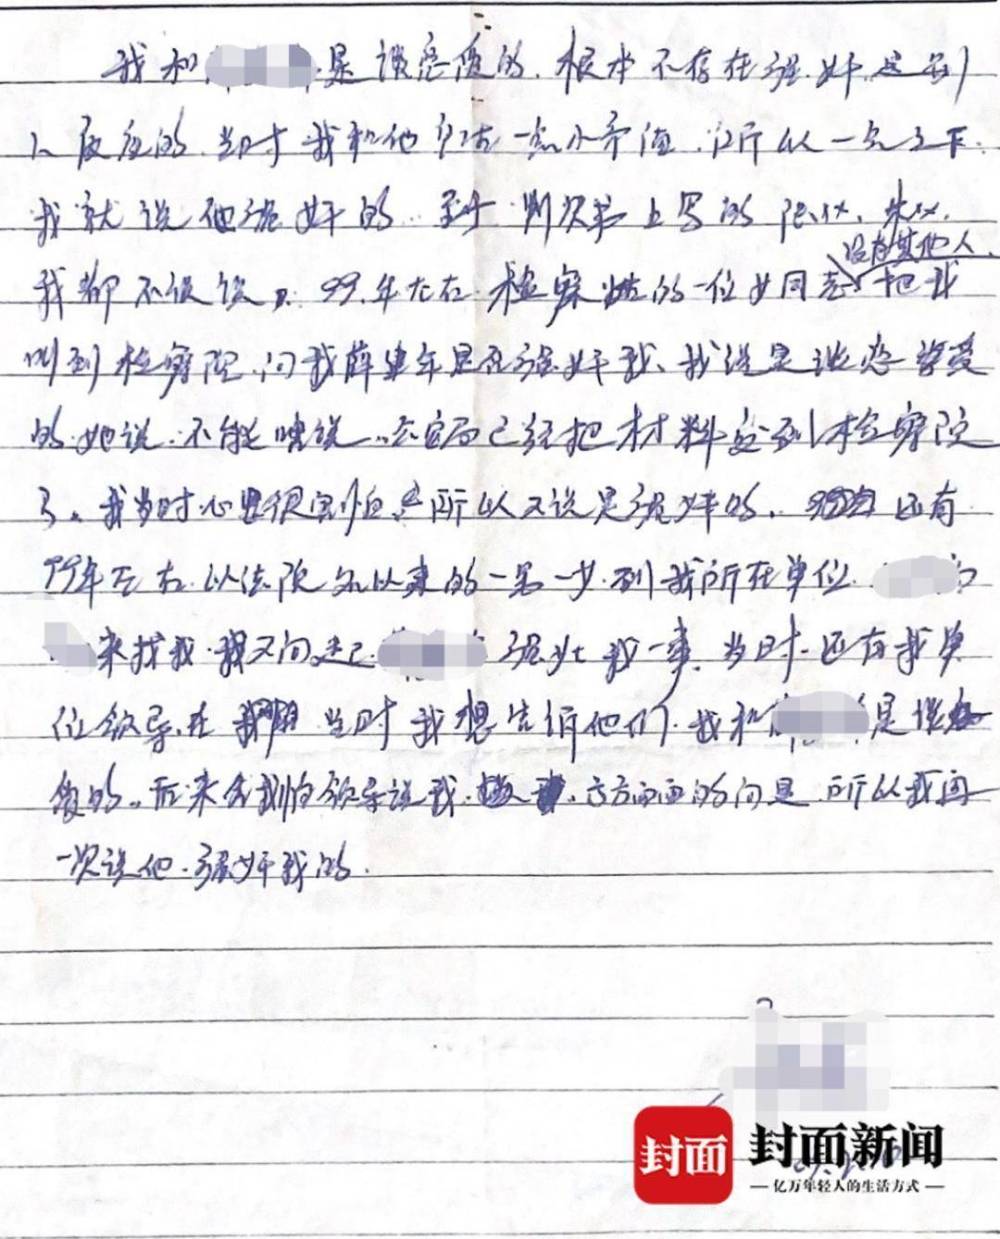 我和 是谈恋爱的，根本不存在强奸，是别
人反应的，当时我和他只有一点小矛盾，所以一气之下
我就说他强奸的。至于判决书上写的陈XX，朱XX，
我都不认识。99年左右检察院的一位女同志 把我
没有其他人
叫到检察院，问我薛 年是否强奸我，我说是谈恋爱
的，她说，不能瞎说，公安局已经把材料交到检察院
了。我当时心里很害怕 所以又说是强奸的， 还有
99年左右，以法院 来的一男一女到我所在单位
来找我，我又问起 强奸我一事，当时还有我单
位领导在 当时我想告诉他们，我和 是谈恋
爱的。后来 我怕领导说我 方面的问题，所以我再
一次说他强奸我的。
封面
封面新闻
亿万年轻人的生活方式